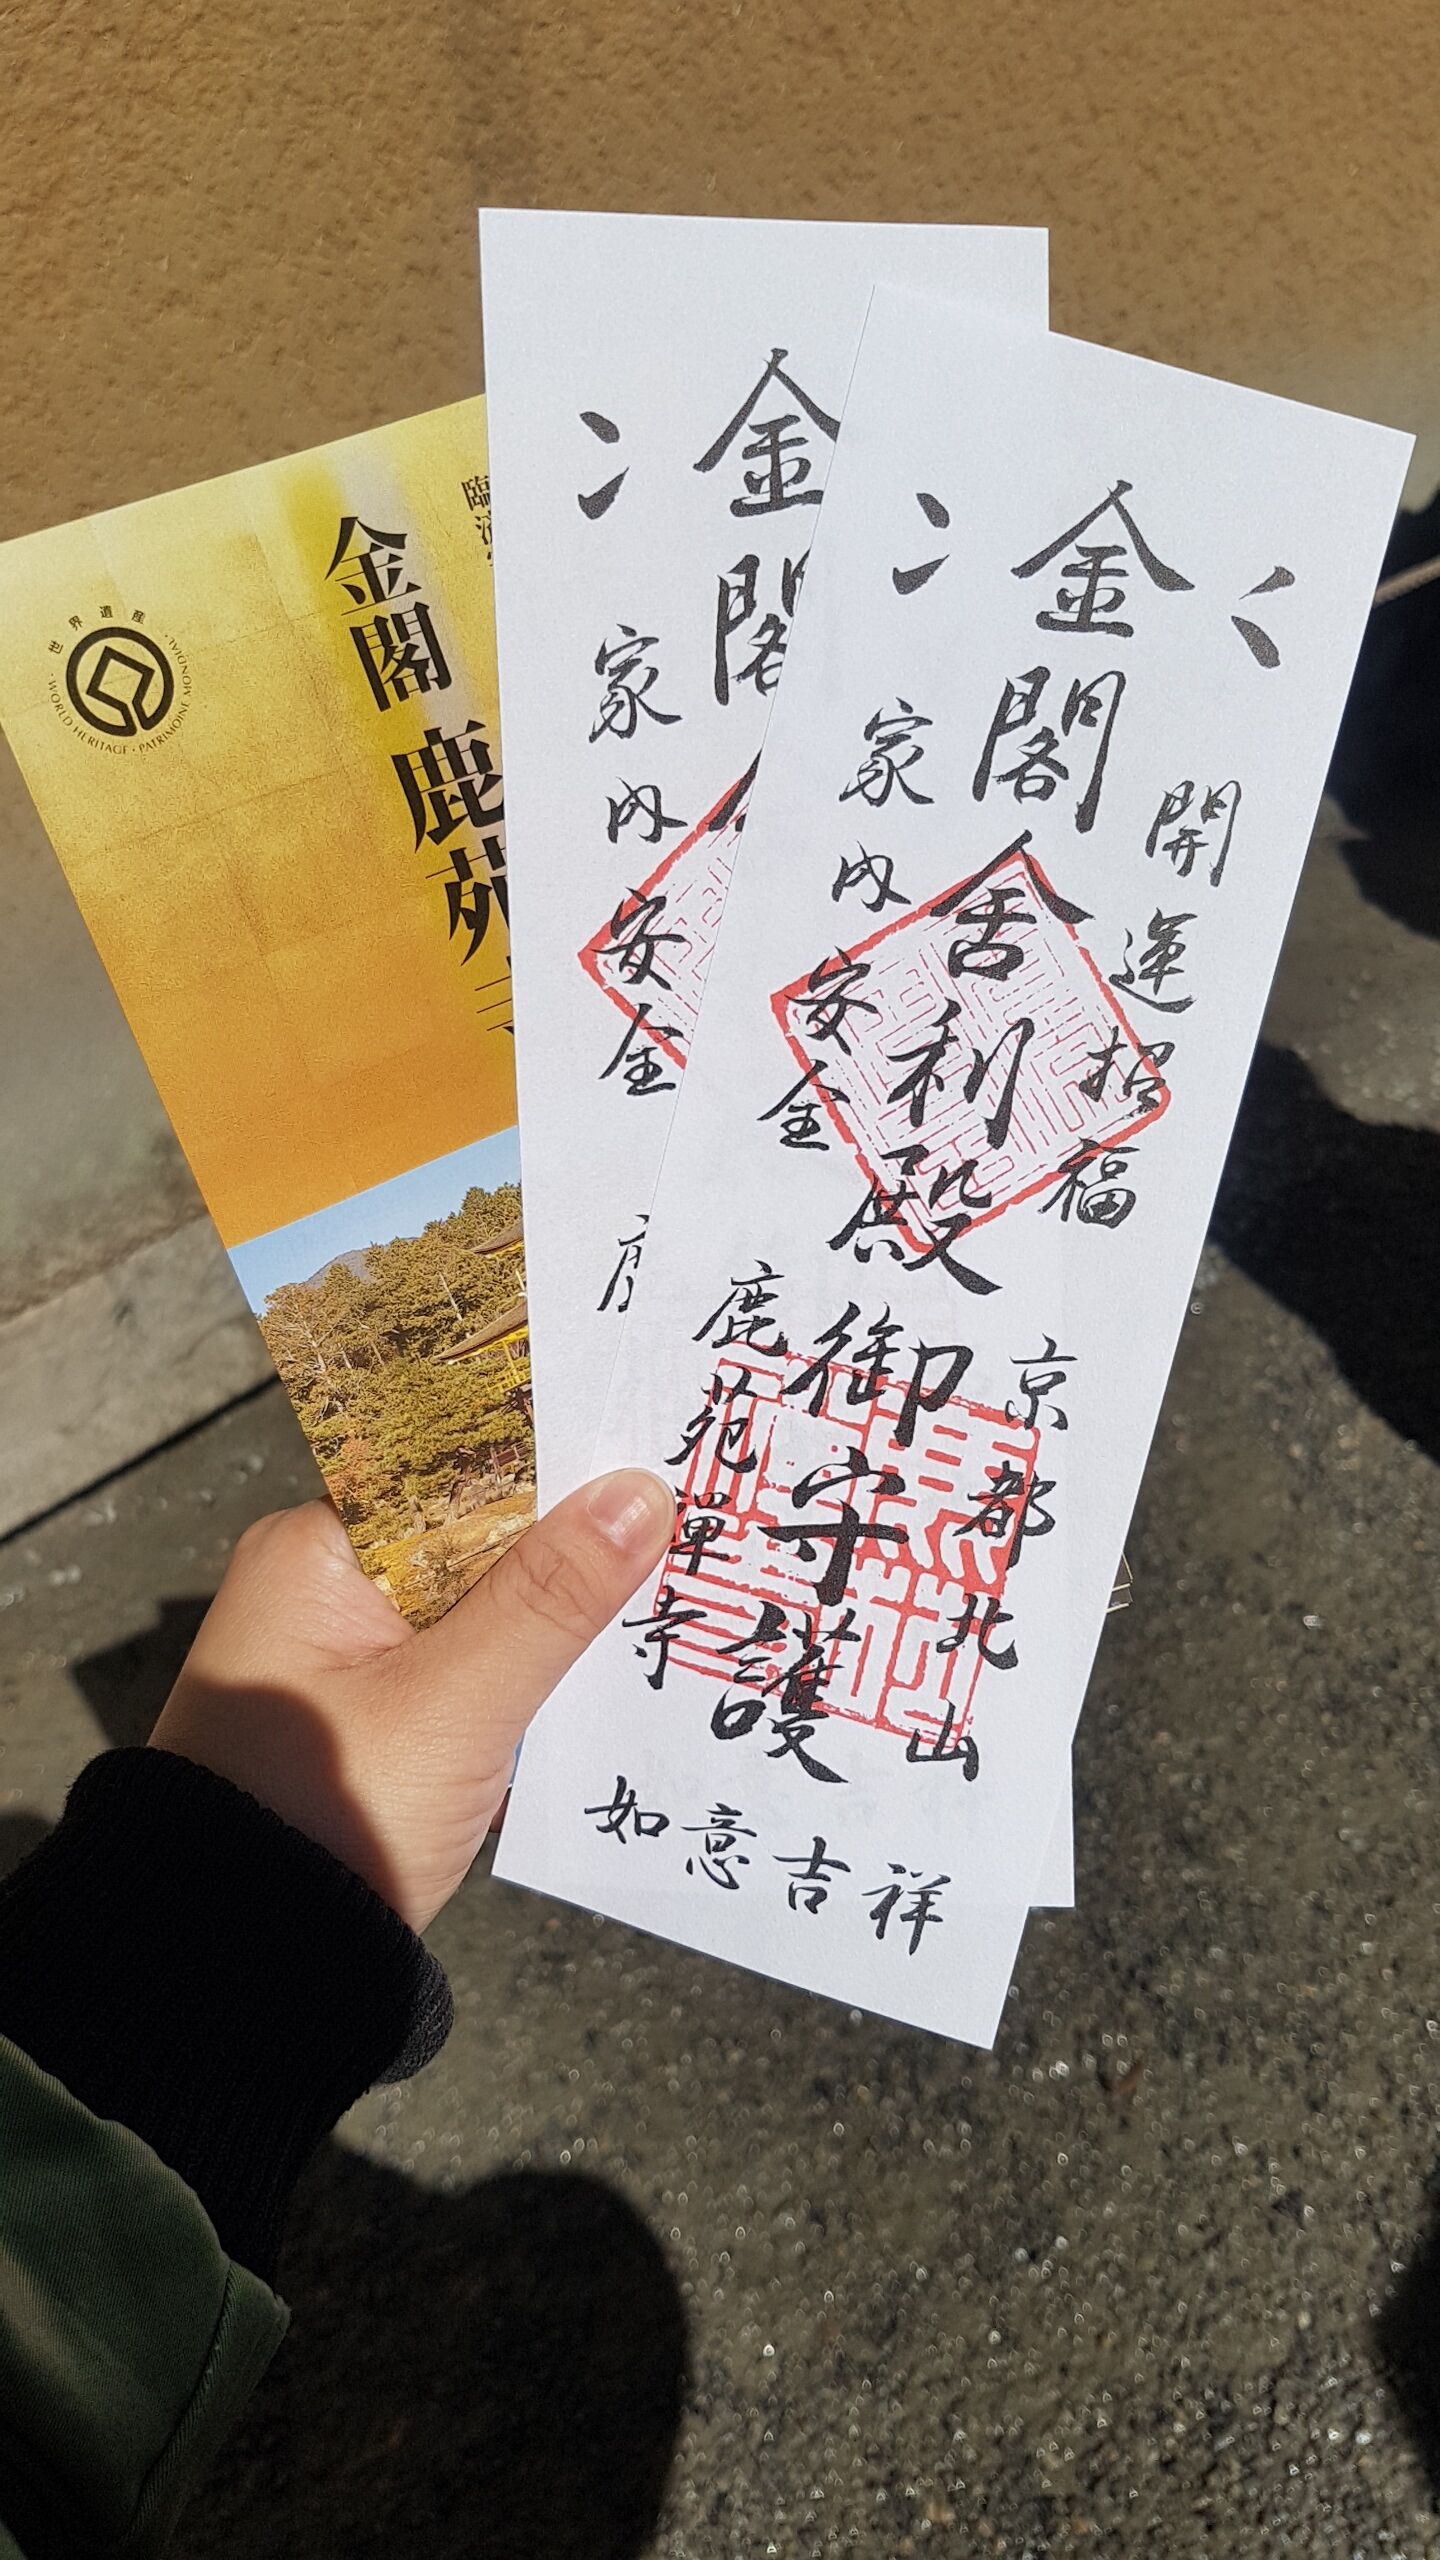 世界遺産
WORLD HERITAGE・PATRIMOINE MONDIAL
臨済
金閣 鹿苑
金閣
家内安全
開運招福
金閣舎利殿御守護
家内安全
京都北山
鹿苑禅寺
如意吉祥